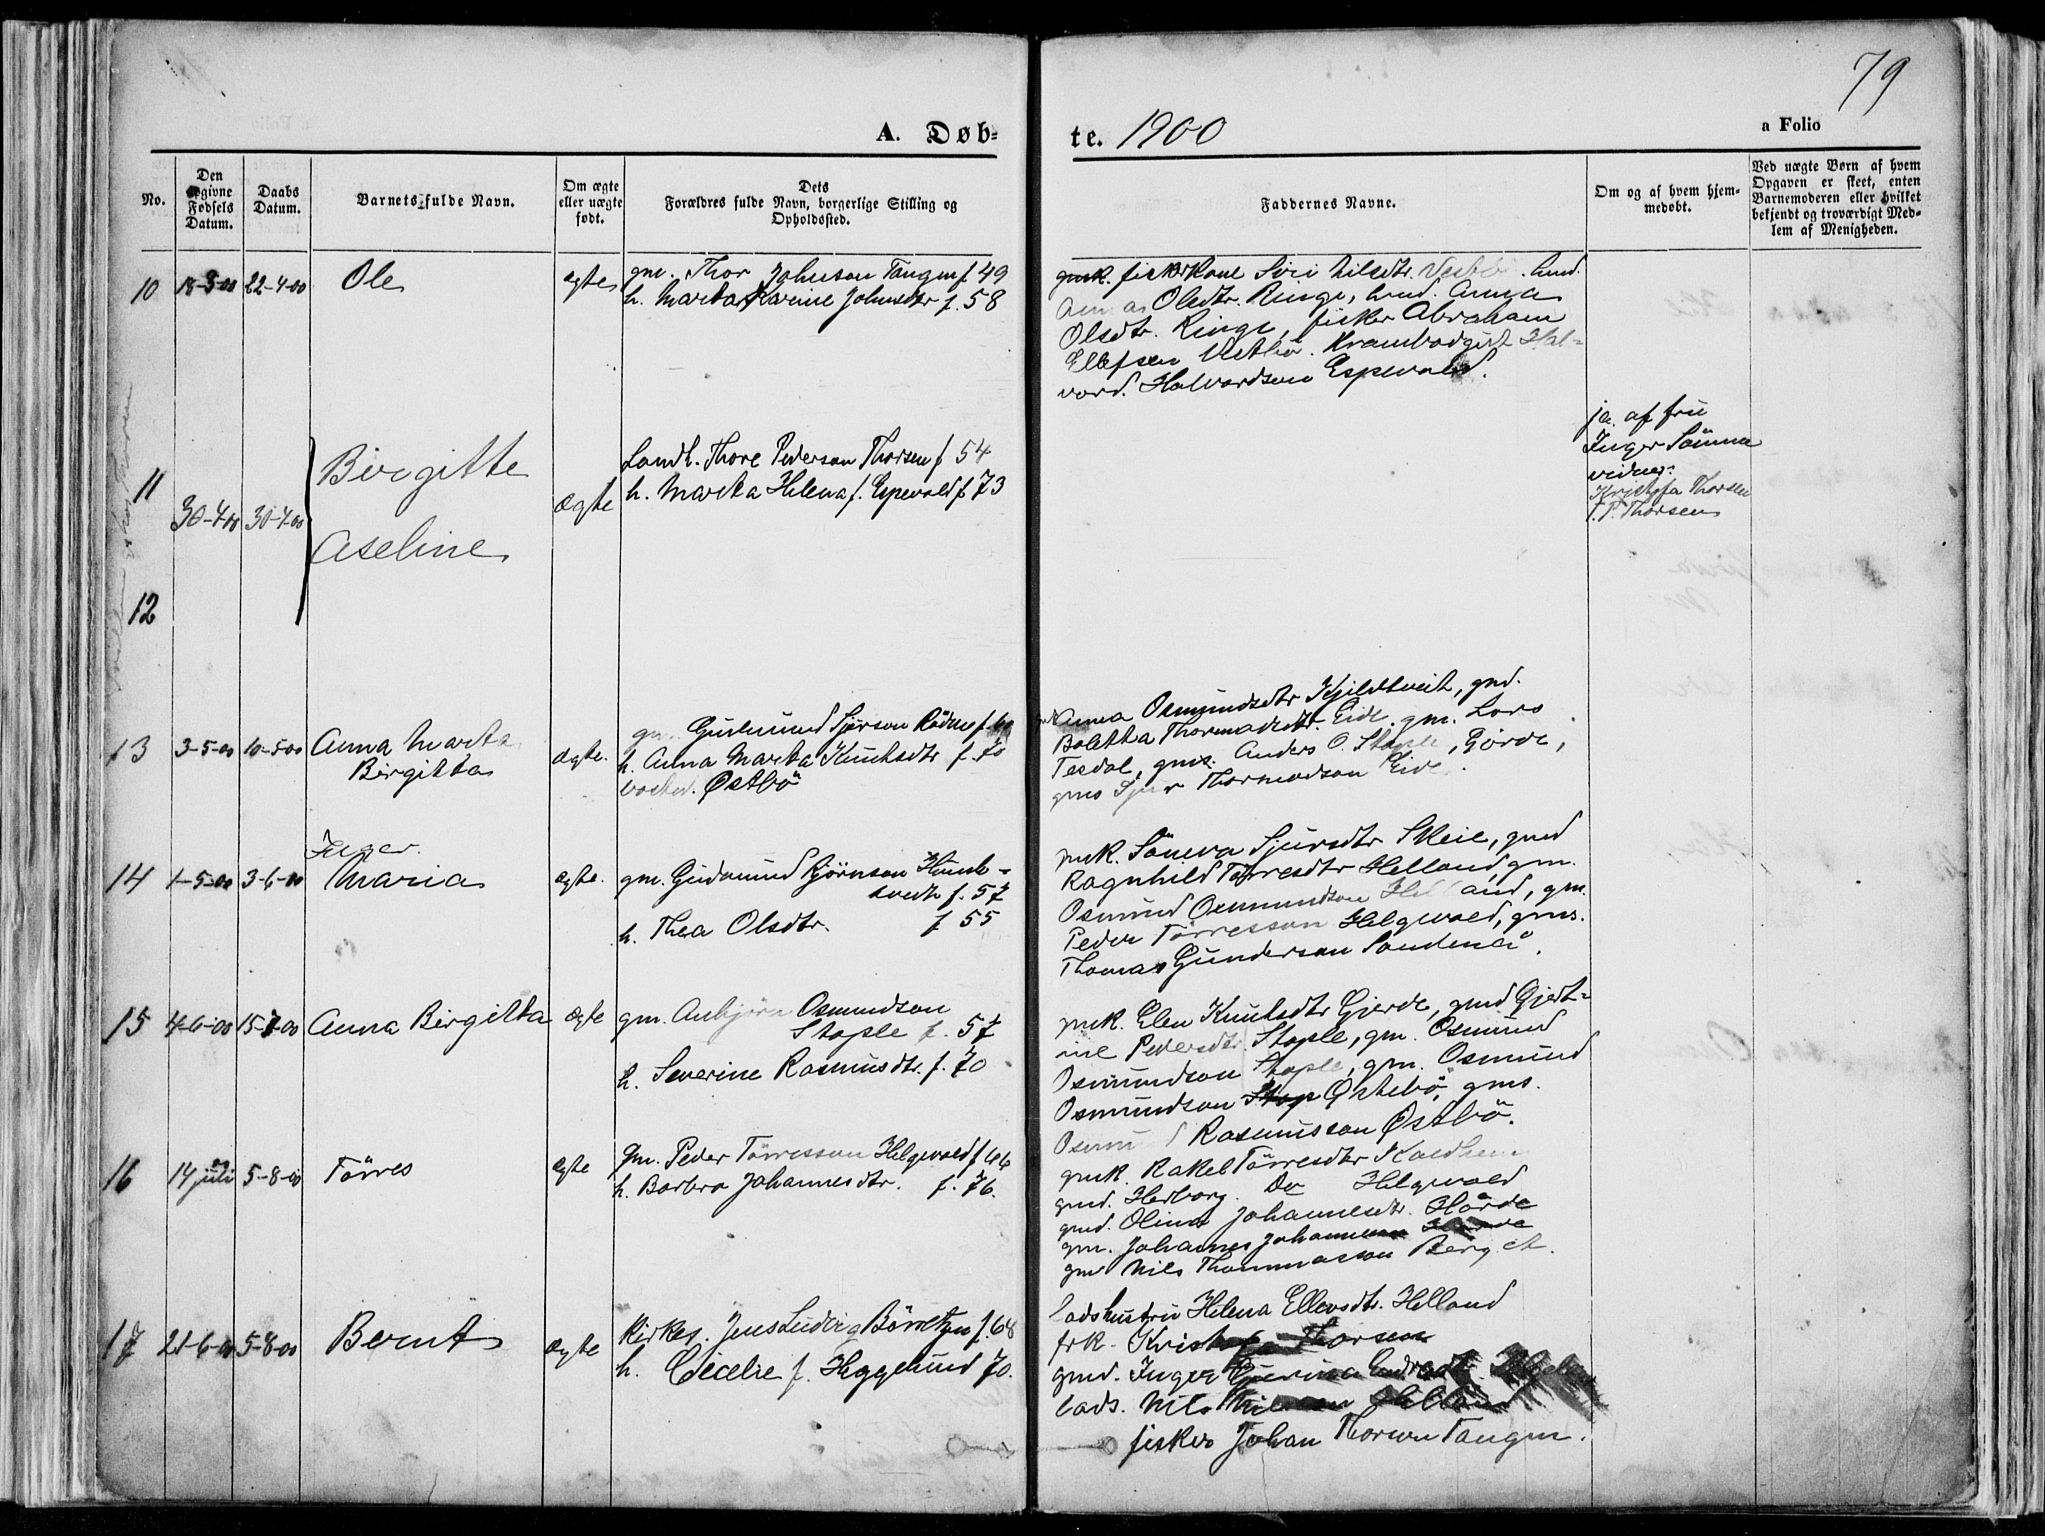 79
A. Døb-
te. 1900
a Folio
No.
Den opgivne Fødsels Datum.
Daabs Datum.
Barnets fulde Navn.
Om ægte eller uægte født.
Dets Forældres fulde Navn, borgerlige Stilling og Opholdssted.
Faddernes Navne.
Om og af hvem hjemmedøbt.
Ved uægte Børn af hvem Opgaven er skeet, enten Barnemoderen eller hvilket bekjendt og troværdigt Medlem af Menigheden.
10 18-3-00 22-4-00 Ole ægte
gm. Thor Johnson Tangen f. 49
h. Marta Karine Johnsdtr f. 58
fiskerkone Siri Nilsdtr.
Olsdtr. Ringe, Anna
Olsdtr. Ringe, fisker Abraham
Ellefsen Vestbø. Krambodgut Hal-
vard. Halvardson Espevold.
11 30-4-00 30-4-00 Birgitte
Aseline ægte
Landh. Thore Pederson Thorsen f 54
h. Marta Helena f. Espevold f. 73
ja. af fru
Inger Sömme
vidner:
Kristofa Thorsen
T. P. Thorsen
12
13 3-5-00 10-5-00 Anna Marta
Birgitta ægte.
Gudmund Sjurson
h. Anna Marta Knutsdtr f. 70
Østbö
Anna Osmundsdtr Kjildtveit, gmd.
Boletta Thormodsdtr. Eide. gm. Lars
Tesdal, gms. Anders O. Stople, Gjerde,
gms Sjur Thormodson Eide.
14 1-5-00 3-6-00 Inger
Maria ægte.
gm. Gudmund Bjørnson Humb-
f. 57
h. Thea Olsdtr. f 55
gmk. Söneva Sjursdtr Skeie, gmd
Ragnhild Törresdtr Helland, gm.
Osmund Osmundson Helland, gm.
Peder Törresson Helgevold, gms.
Thomas Gunderson Sandenä.
15 4-6-00 15-7-00 Anna Birgitta ægte
gm. Anbjørn Osmundson
Stople f. 57
h. Severine Rasmusdtr. f. 70
gmk. Elen Knutsdtr Gjerde, gmd Gjert-
ine Pedersdtr Stople, gm. Osmund
Osmundson Stople, gm. Osmund
Osmundson Stop Østebö, gms.
Osmund Rasmusson Østbö.
16 14 juli 5-8-00 Törres ægte
gm. Peder Törresson Helgevold f 66
h. Barbro Johannesdtr. f. 76.
gmk. Rakel Törresdtr
gmd. Herborg Do Helgevold
gmd. Olina Johannesdtr. Hårde
gm. Johannes Johanneson
gm Nils Thommasson
17 21-6-00 5-8-00 Bernt ægte
Kirkes. Jens Ludvig f. 68
h. Cecelie f. Heggelund 70.
ladshustru Helena Ellevsdtr. Helland
frk. Kristofa Thorsen
gmd. Inger
lads. Nils Helland
fisker Johan Thorsen Tangen.